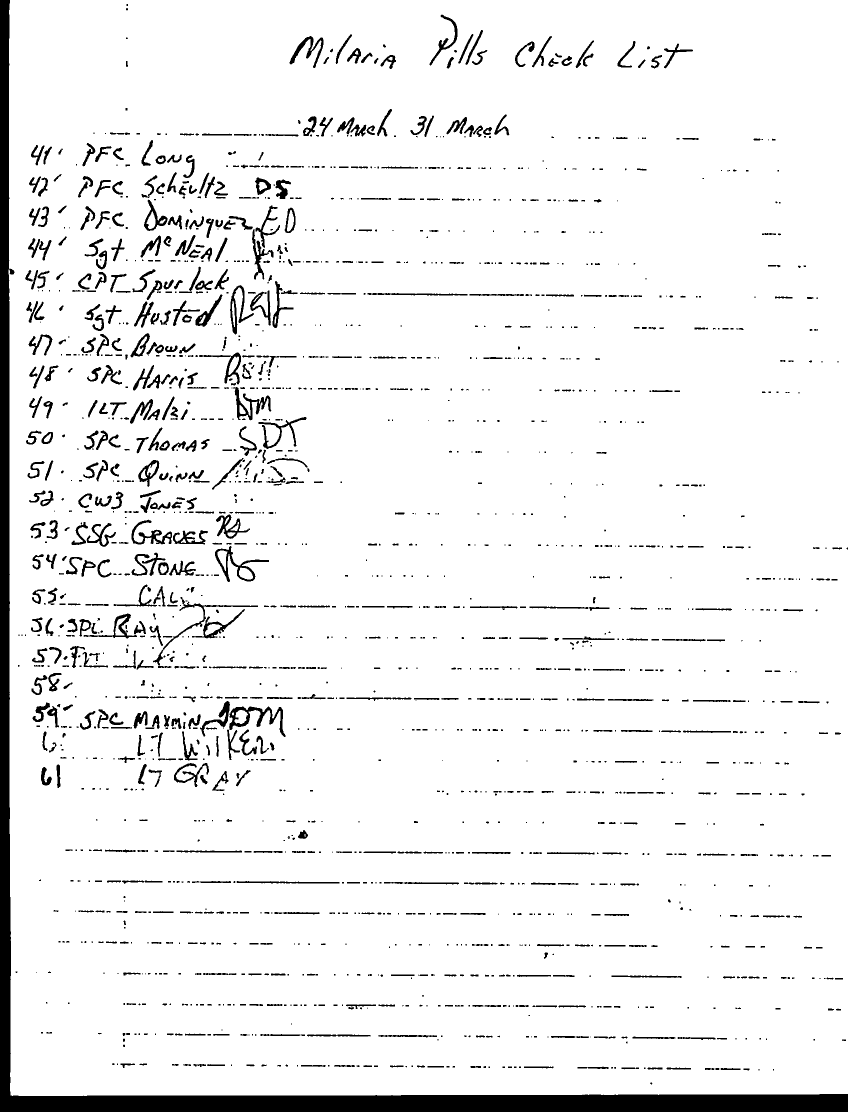 Milaria Pills Check List
24 March 31 March
41. PFC Long
42. PFC Scheultz DS
43. PFC Dominquez ED
44. Sgt McNeal
45. CPT Spurlock
46. Sgt Hustod
47. SPC Brown
48. SPC Harris
49. 1LT Malzi DTM
50. SPC Thomas SDT
51. SPC Quinn
52. CW3 Jones
53. SSG Graves
54. SPC Stone
55.
56. SPC Ray
57.
58.
59. SPC Maymin JDM
LT
61 LT GRAY